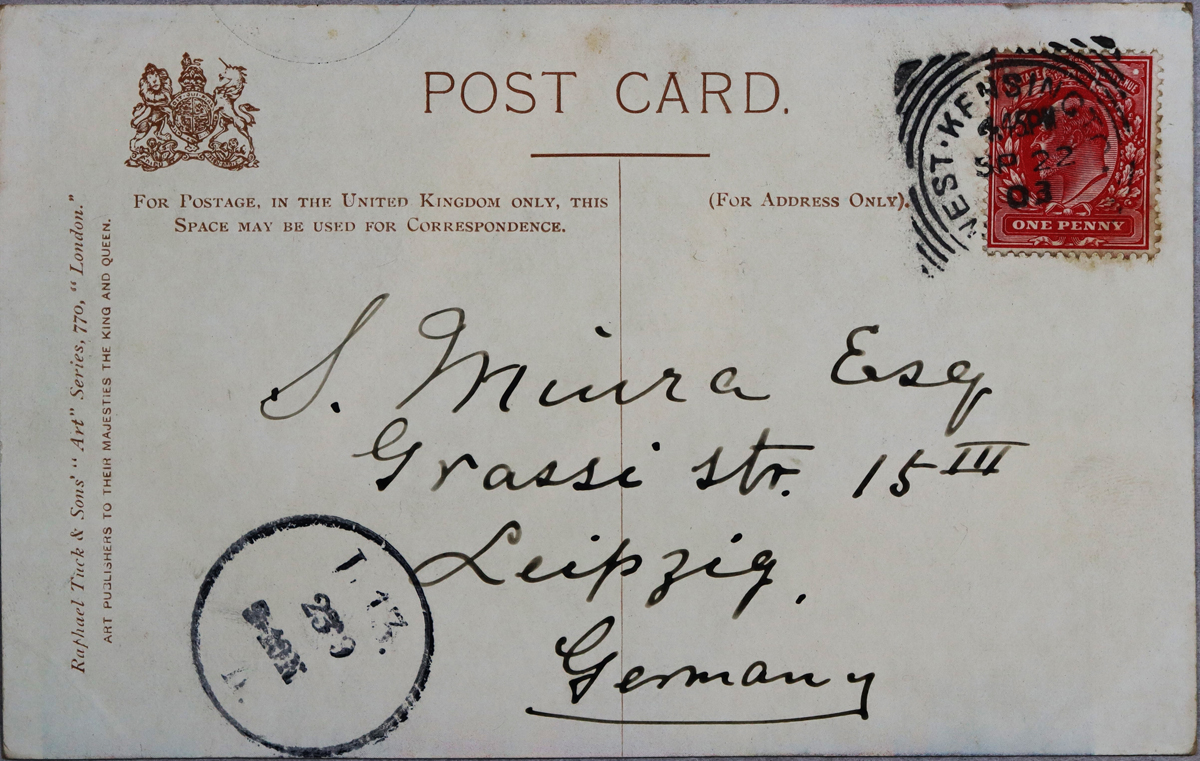 POST CARD.
FOR POSTAGE, IN THE UNITED KINGDOM ONLY, THIS
SPACE MAY BE USED FOR CORRESPONDENCE.
(FOR ADDRESS ONLY).
WEST·KENSING
PM
SP 22
03
ONE PENNY
S. Miura Esq
Grassi str. 15 III
Leipzig,
Germany
Raphael Tuck & Sons' "Art" Series, 770, "London."
ART PUBLISHERS TO THEIR MAJESTIES THE KING AND QUEEN.